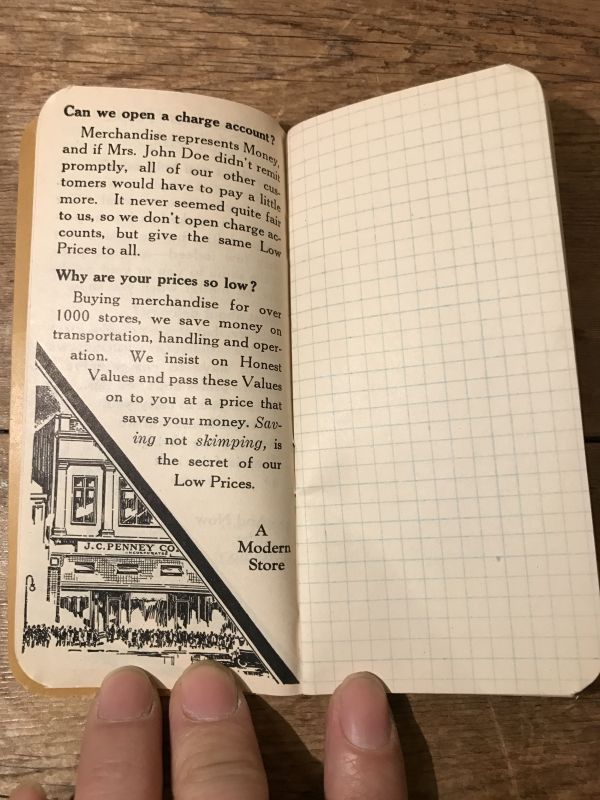 Can we open a charge account?
Merchandise represents Money,
and if Mrs. John Doe didn't remit
promptly, all of our other cus-
tomers would have to pay a little
more. It never seemed quite fair
to us, so we don't open charge ac-
counts, but give the same Low
Prices to all.
Why are your prices so low?
Buying merchandise for over
1000 stores, we save money on
transportation, handling and oper-
ation. We insist on Honest
Values and pass these Values
on to you at a price that
saves your money. Sav-
ing not skimping, is
the secret of our
Low Prices.
A
Modern
Store
J.C. PENNEY CO.
INCORPORATED